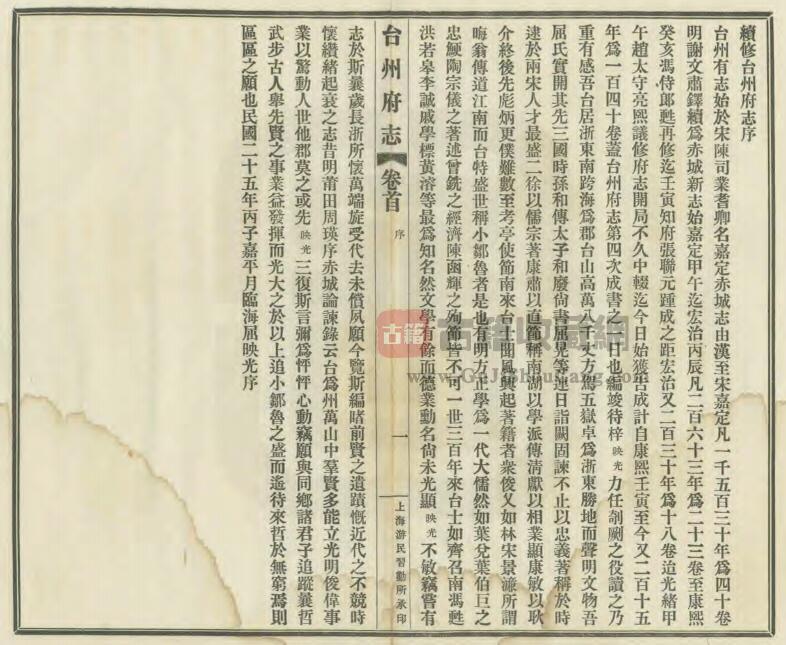 續修台州府志序
台州有志始於宋陳司業耆卿名嘉定赤城志由漢至宋嘉定凡一千五百三十年爲四十卷
明謝文肅鐸續爲赤城新志始嘉定甲午迄宏治丙辰凡二百六十三年爲二十三卷至康熙
癸亥馮侍郎甦再修迄壬寅知府張聯元踵成之距宏治又二百三十年爲十八卷迨光緒甲
午趙太守亮熙議修府志開局不久中輟迄今日始獲告成計自康熙壬寅至今又二百十五
年爲一百四十卷蓋台州府志第四次成書之一日也編竣待梓映光力任剞劂之役讀之乃
重有感吾台居浙東南跨海爲郡台山高萬八千丈方駕五嶽卓爲浙東勝地而聲明文物吾
屈氏實開其先三國時孫和傳太子和廢尙書屈晃等連日詣闕固諫不止以忠義著稱於時
逮於兩宋人才最盛二徐以儒宗著康肅以直節稱南湖以學派傳淸獻以相業顯康敏以耿
介終後先彪炳更僕難數至考亭使節南來台士聞風興起著籍者衆俊又如林宋景濂所謂
晦翁傳道江南而台特盛世稱小鄒魯者是也有明方正學爲一代大儒然如葉兌葉伯巨之
忠鯁陶宗儀之著述曾銑之經濟陳函輝之殉節皆不可一世三百年來台士如齊召南馮甦
洪若皋李誠戚學標黃溶等最爲知名然文學有餘而德業勳名尙未光顯映光不敏竊嘗有
台州府志 卷首 序 一 上海游民習勤所承印
志於斯曩歲長浙所懷萬端旋受代去未償夙願今覽斯編睹前賢之遺蹟慨近代之不競時
懷纘緒起衰之志昔明莆田周瑛序赤城論諫錄云台爲州萬山中羣賢多能立光明俊偉事
業以驚動人世他郡莫之或先映光三復斯言彌爲怦怦心動竊願與同鄉諸君子追蹤曩哲
武步古人舉先賢之事業益發揮而光大之於以上追小鄒魯之盛而遙待來哲於無窮焉則
區區之願也民國二十五年丙子嘉平月臨海屈映光序
古籍收藏網
www.GuJiShouCang.com